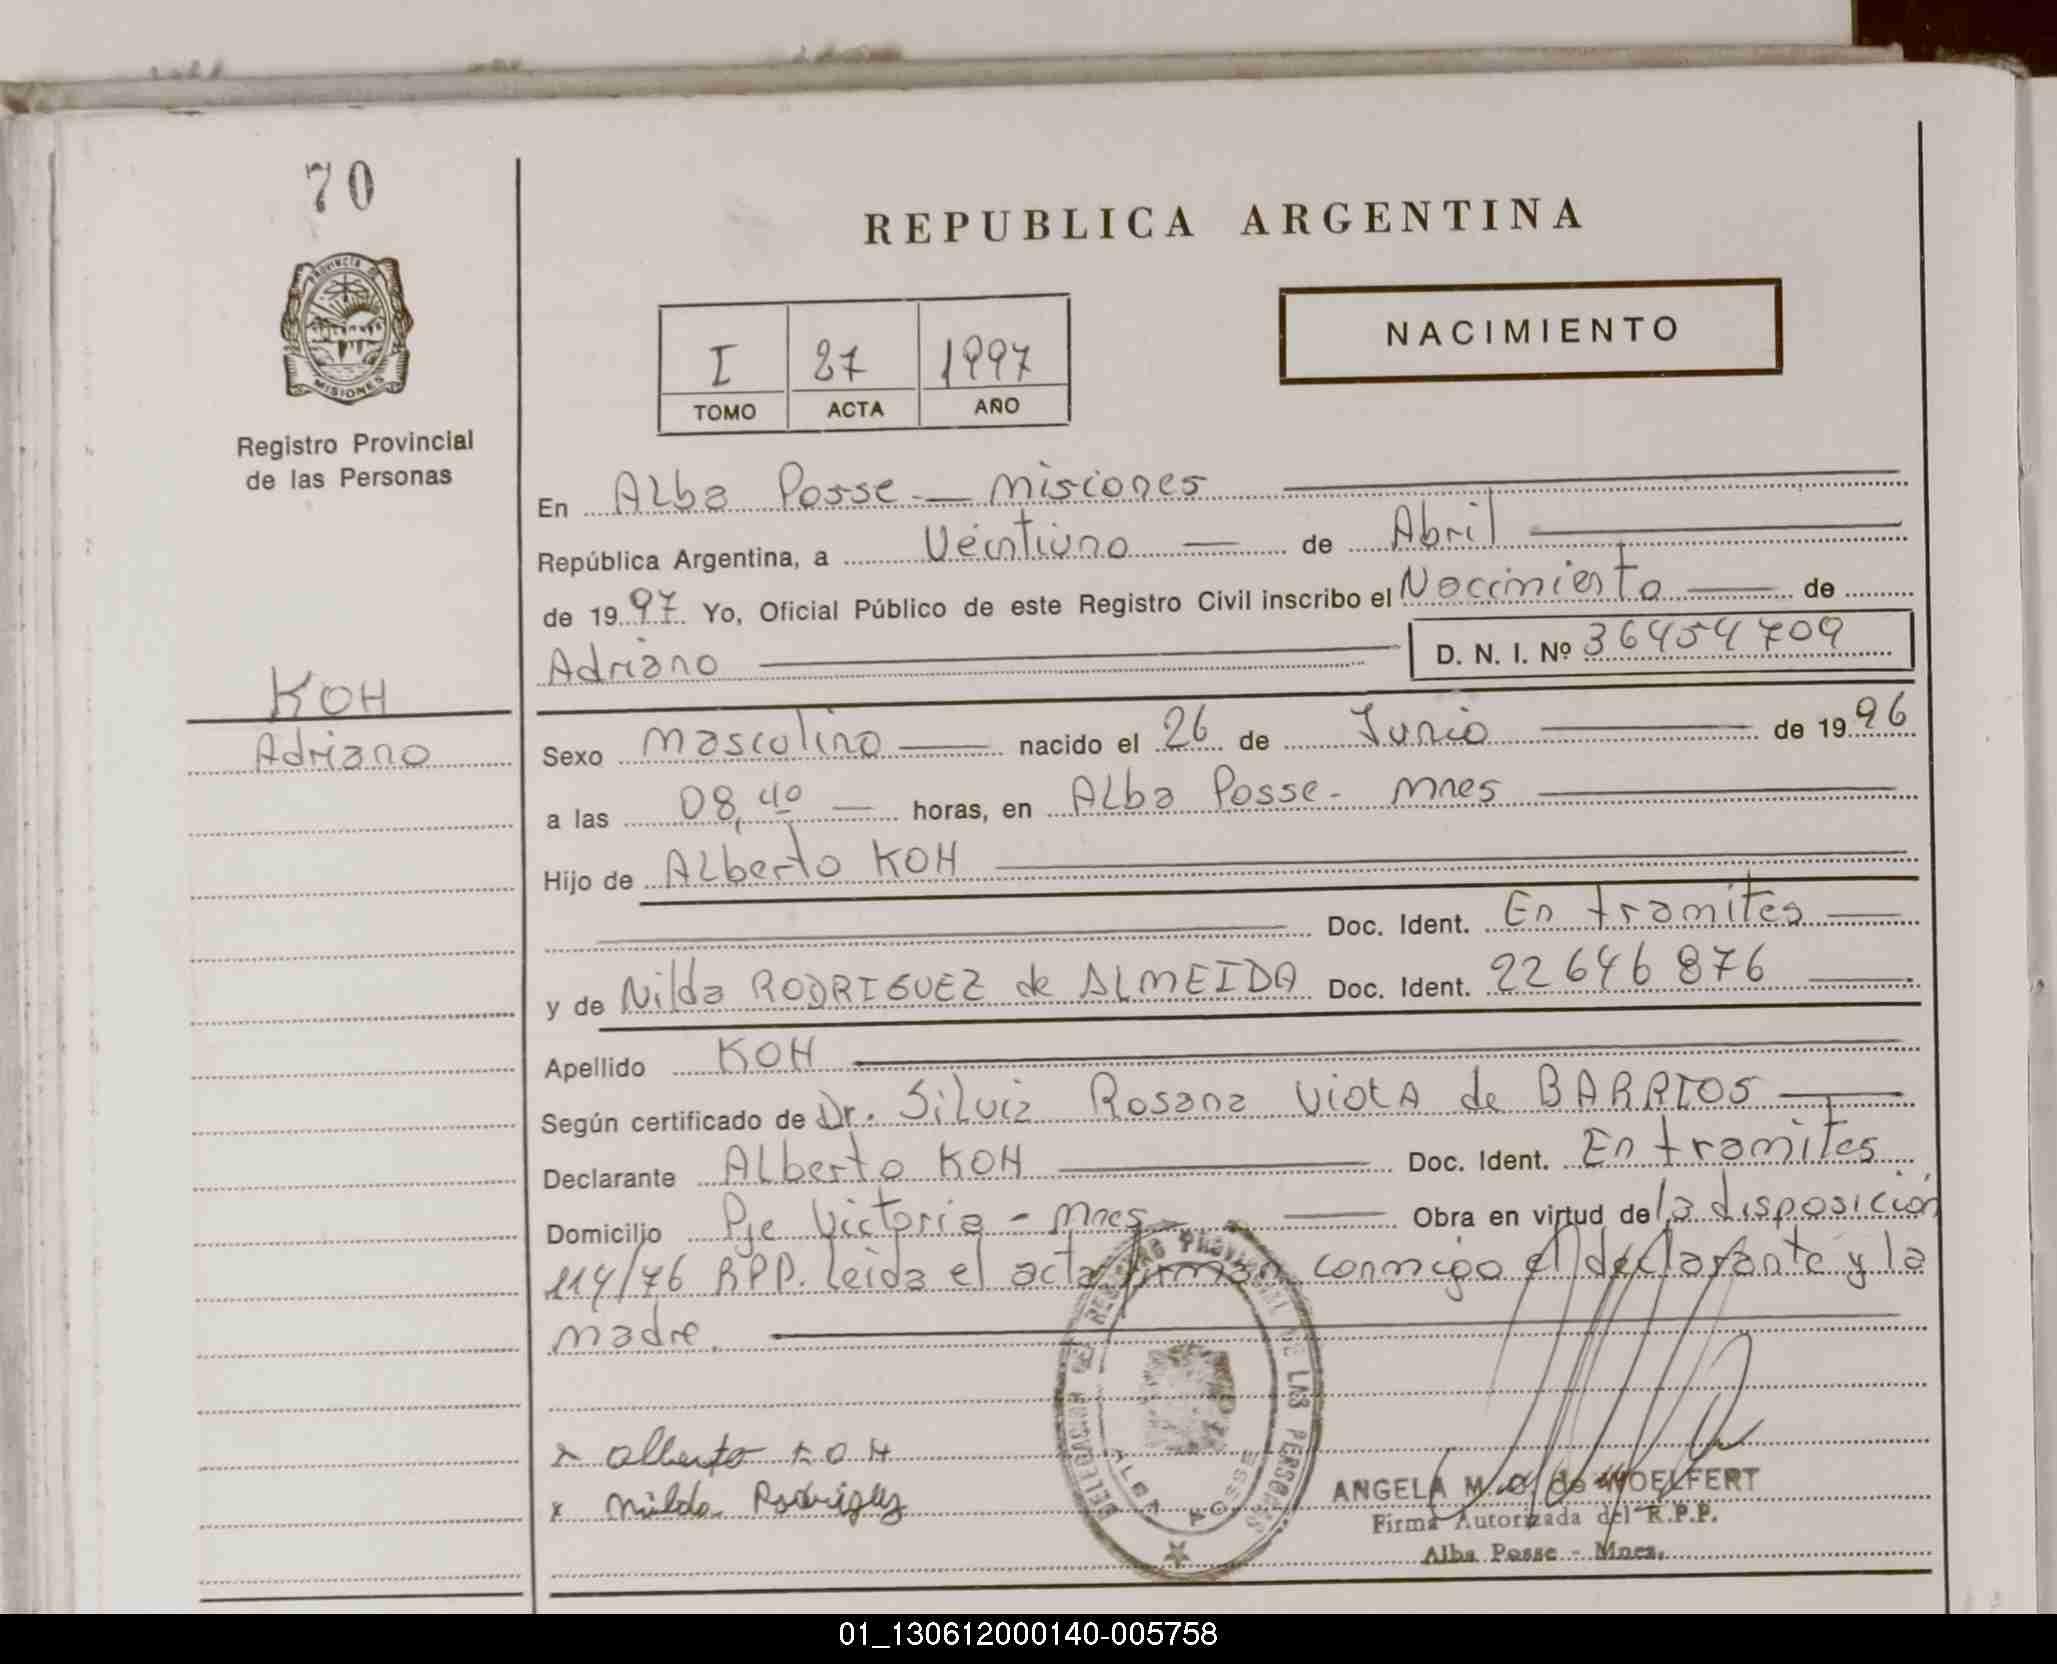 70
REPUBLICA ARGENTINA
PROVINCIA DE
MISIONES
NACIMIENTO
I 27 1997
TOMO ACTA AÑO
Registro Provincial
de las Personas
En Alba Posse - Misiones
República Argentina, a Veintiuno de Abril
de 1997 Yo, Oficial Público de este Registro Civil inscribo el Nacimiento de
Adriano D. N. I. Nº 36454709
KOH
Adriano
Sexo masculino nacido el 26 de Junio de 1996
a las 08,40 horas, en Alba Posse - Mnes
Hijo de Alberto KOH
Doc. Ident. En tramites
y de Nilda RODRIGUEZ de ALMEIDA Doc. Ident. 22646876
Apellido KOH
Según certificado de Dr. Silvia Rosana Viota de BARRIOS
Declarante Alberto KOH Doc. Ident. En tramites
Domicilio Pje Victoria - Mnes Obra en virtud de la disposición
114/76 RPP. leida el acta firman conmigo el declarante y la
madre.
x Alberto KOH
x Nilda Rodriguez
REGISTRO PROVINCIAL DE LAS PERSONAS
ALBA POSSE
ANGELA M. de WOELFERT
Firma Autorizada del R.P.P.
Alba Posse - Mnes.
01_130612000140-005758